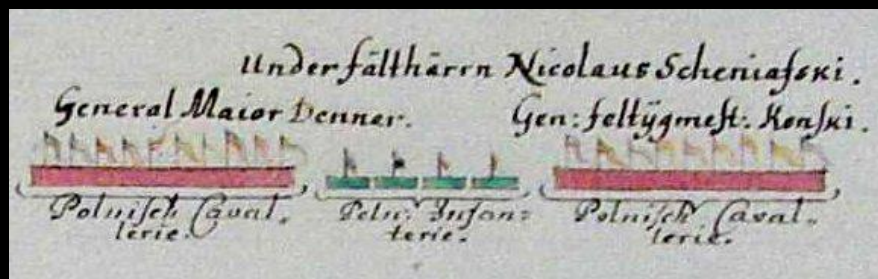 Under fälthärrn Nicolaus Scheniafski.
General Maior Denner. Gen: feltÿgmest: Konski.
Polnisch Caval- Poln: Infan= Polnisch Caval-
lerie. terie. lerie.